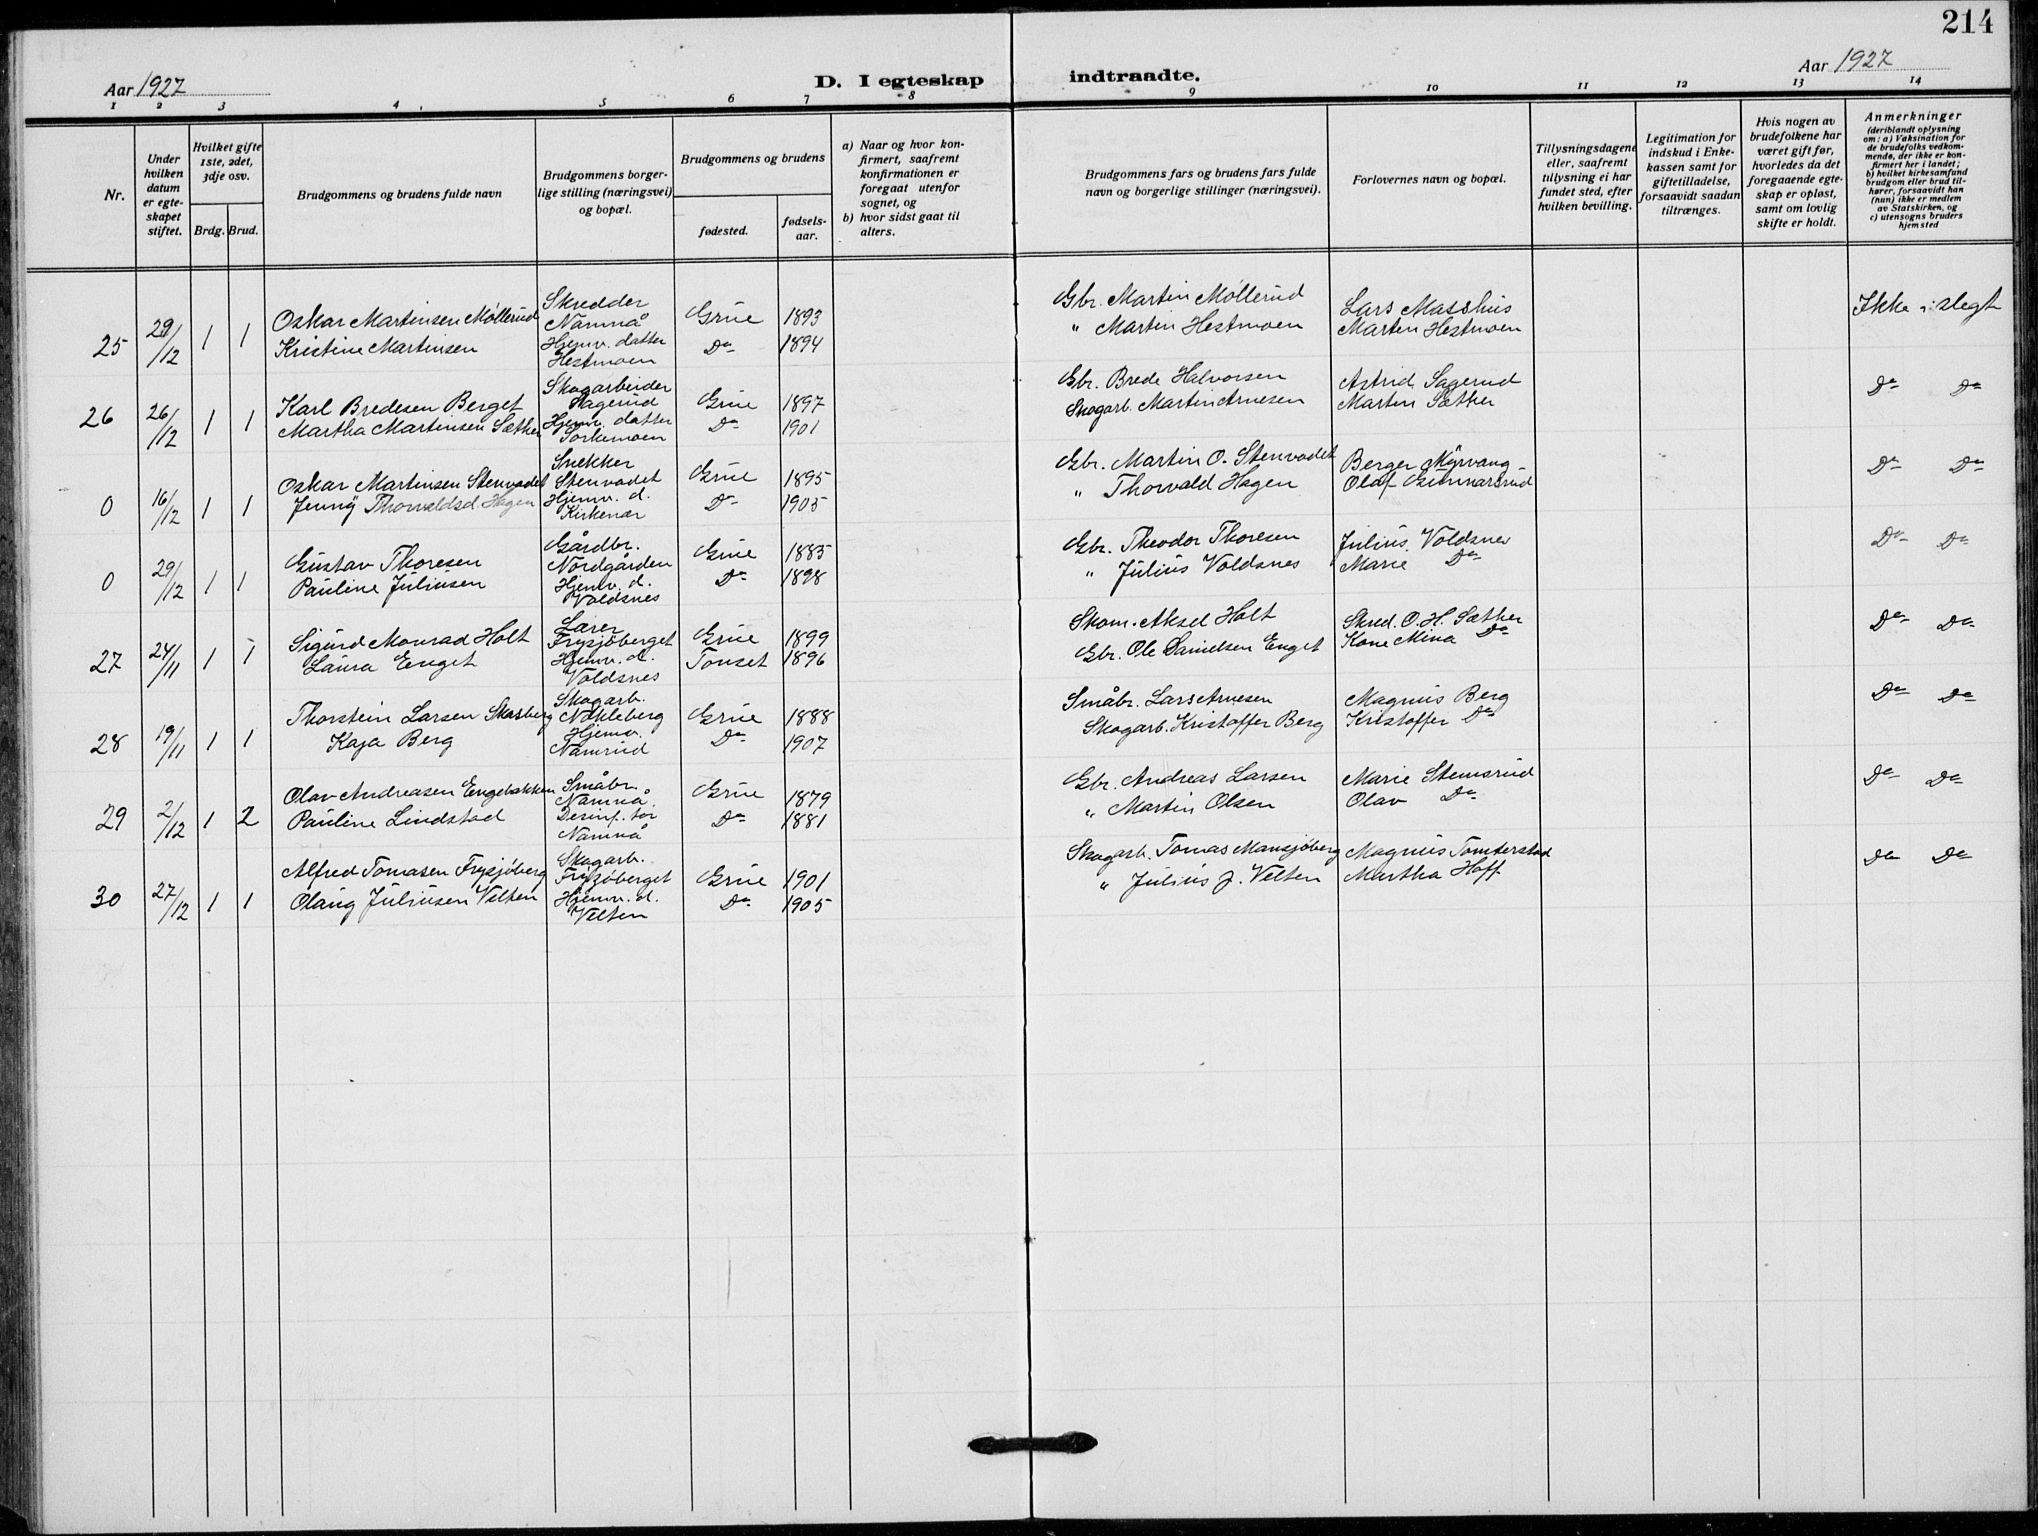 214
Aar 1927
D. I egteskap indtraadte.
Aar 1927
1 2 3 4 5 6 7 8 9 10 11 12 13 14
Nr.
Under hvilken datum er egteskapet stiftet.
Hvilket gifte 1ste, 2det, 3dje osv.
Brdg. Brud.
Brudgommens og brudens fulde navn
Brudgommens borgerlige stilling (næringsvei) og bopæl.
Brudgommens og brudens
fødested.
fødselsaar.
a) Naar og hvor konfirmert, saafremt konfirmationen er foregaat utenfor sognet, og
b) hvor sidst gaat til alters.
Brudgommens fars og brudens fars fulde navn og borgerlige stillinger (næringsvei).
Forlovernes navn og bopæl.
Tillysningsdagene eller, saafremt tillysning ei har fundet sted, efter hvilken bevilling.
Legitimation for indskud i Enkekassen samt for giftetilladelse, forsaavidt saadan tiltrænges.
Hvis nogen av brudefolkene har været gift før, hvorledes da det foregaaende egteskap er opløst, samt om lovlig skifte er holdt.
Anmerkninger
(deriblandt oplysning om: a) Vaksination for de brudefolks vedkommende, der ikke er konfirmert her i landet; b) hvilket kirkesamfund brudgom eller brud tilhører, forsaavidt han (hun) ikke er medlem av Statskirken, og c) utensogns bruders hjemsted
25 29/12 1 1
Oskar Martinsen Møllerud
Kristine Martinsen
Skredder
Namnå
Hjemv. datter
Hestmoen
Grue 1893
Do 1894
Gbr. Martin Møllerud
" Martin Hestmoen
Lars Masshus
Martin Hestmoen
Ikke i slegt
26 26/12 1 1
Karl Bredesen Berget
Martha Martinsen Sæther
Skogarbeider
Hagerud
Hjemv. datter
Torkemoen
Grue 1897
Do 1901
Gbr. Brede Halvorsen
Skogarb. Martin Arnesen
Astrid Sagerud
Martin Sæther
Do Do
0 16/12 1 1
Oskar Martinsen Stenvadet
Jenny Thorvaldsd. Hagen
Snekker
Stenvadet
Hjemv. d.
Kirkenær
Grue 1895
Do 1905
Gbr. Martin O. Stenvadet
" Thorvald Hagen
Berger Myrvang
Olaf Gunnarsrud
Do Do
0 29/12 1 1
Gustav Thoresen
Pauline Juliusen
Gårdbr.
Nordgården
Hjemv. d.
Voldsnes
Grue 1885
Do 1898
Gbr. Theodor Thoresen
" Julius Voldsnes
Julius Voldsnes
Marie Do
Do Do
27 24/11 1 1
Sigurd Monrad Holt
Laura Enget
Lærer
Frysjøberget
Hjemv. d.
Voldsnes
Grue 1899
Tonset 1896
Skom. Aksel Holt
Gbr. Ole Danielsen Enget
Skred. O. H. Sæther
Kone Mina Do
Do Do
28 19/11 1 1
Thorstein Larsen Skasberg
Kaja Berg
Skogarb.
Nokleberg
Hjemv.
Namrud
Grue 1888
Do 1907
Småbr. Lars Arnesen
Skogarb. Kristoffer Berg
Magnus Berg
Kristoffer Do
Do Do
29 2/12 1 2
Olav Andreasen Engebakken
Pauline Lindstad
Småbr.
Namnå.
Desinf.tør
Namnå
Grue 1879
Do 1881
Gbr. Andreas Larsen
" Martin Olsen
Marie Stemsrud
Olav Do
Do Do
30 27/12 1 1
Alfred Tomasen Frysjøberg
Olaug Juliusen Velten
Skogarb.
Frysjøberget
Hjemv. d.
Velten
Grue 1901
Do 1905
Skogarb. Tomas Mansjøberg
" Julius J. Velten
Magnus Tomterstad
Martha Hoff
Do Do